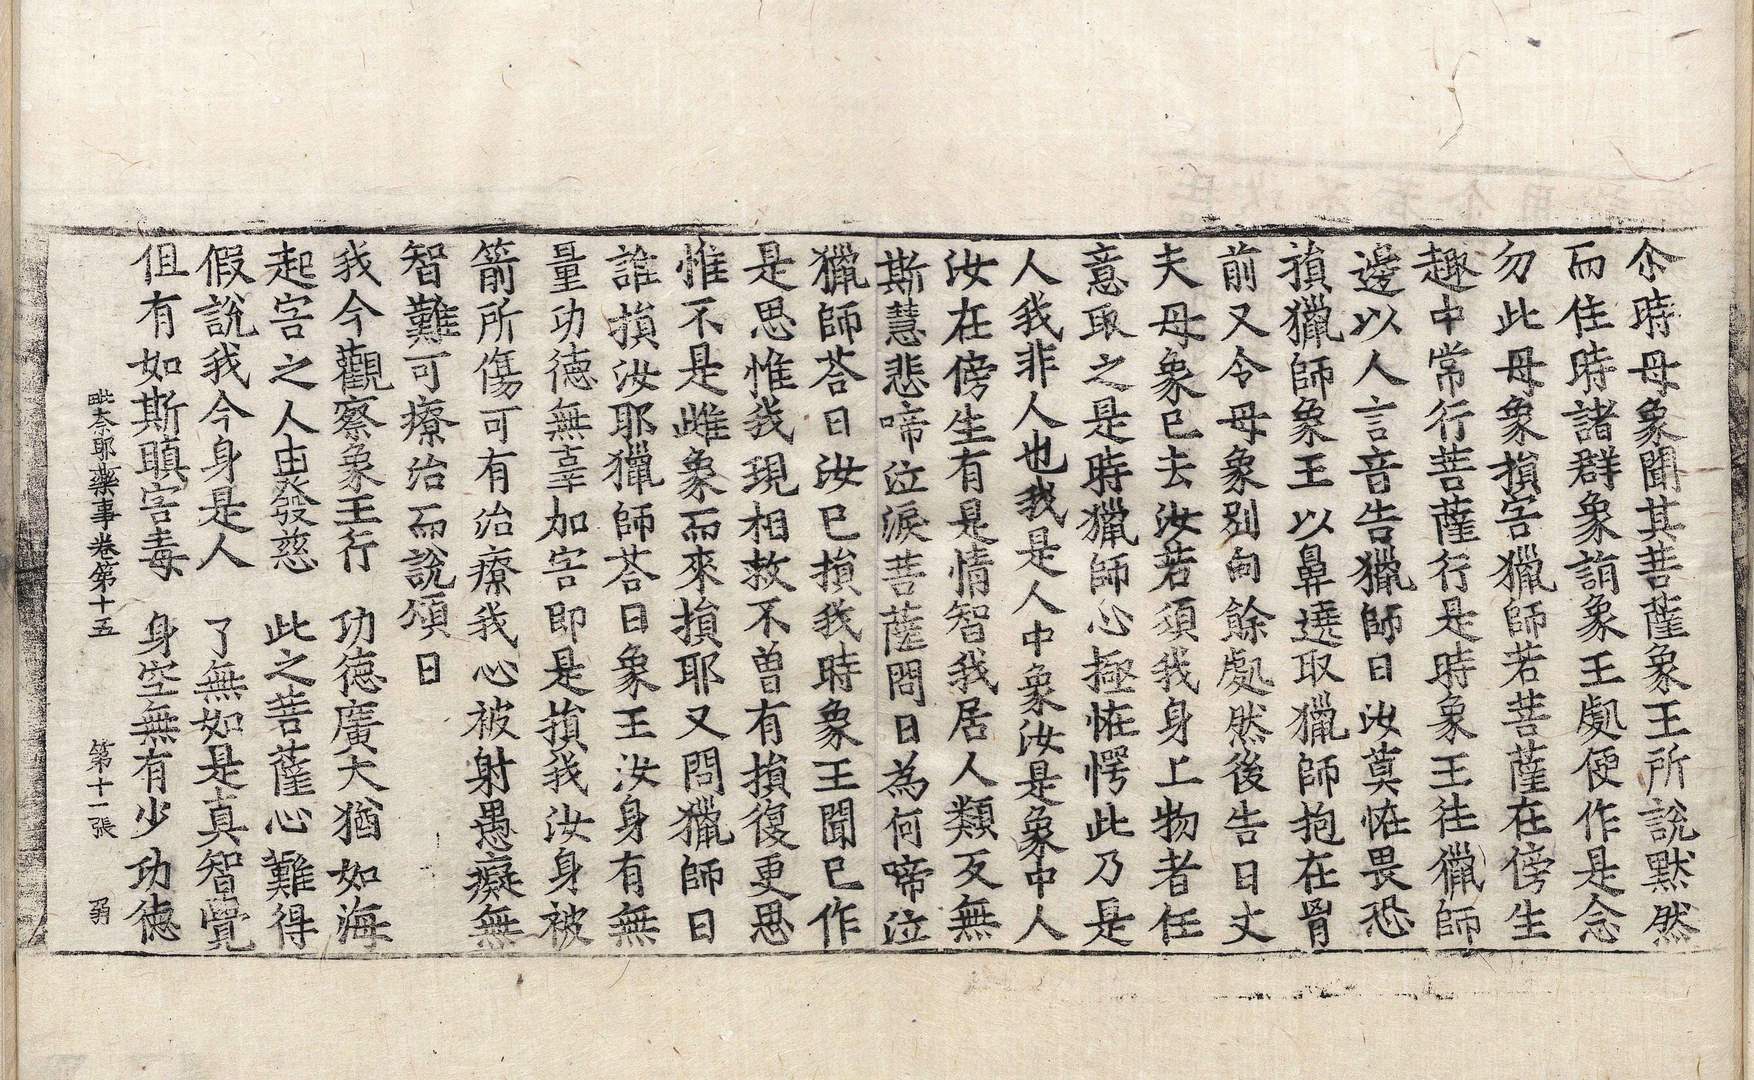 尒時母象聞其菩薩象王所說默然
而住時諸群象詣象王處便作是念
勿此母象損害獵師若菩薩在傍生
趣中常行菩薩行是時象王往獵師
邊以人言音告獵師曰汝莫恠畏恐
損獵師象王以鼻遶取獵師抱在胷
前又令母象別向餘處然後告曰丈
夫母象已去汝若須我身上物者任
意取之是時獵師心極恠愕此乃是
人我非人也我是人中象汝是象中人
汝在傍生有是情智我居人類反無
斯慧悲啼泣淚菩薩問曰為何啼泣
獵師荅曰汝已損我時象王聞已作
是思惟我現相救不曾有損復更思
惟不是雌象而來損耶又問獵師曰
誰損汝耶獵師荅曰象王汝身有無
量功德無辜加害即是損我汝身被
箭所傷可有治療我心被射愚癡無
智難可療治而說頌曰
我今觀察象王行　功德廣大猶如海
起害之人由發慈　此之菩薩心難得
假說我今身是人　了無如是真智覺
但有如斯瞋害毒　身空無有少功德
毗奈耶藥事卷第十五　第十一張